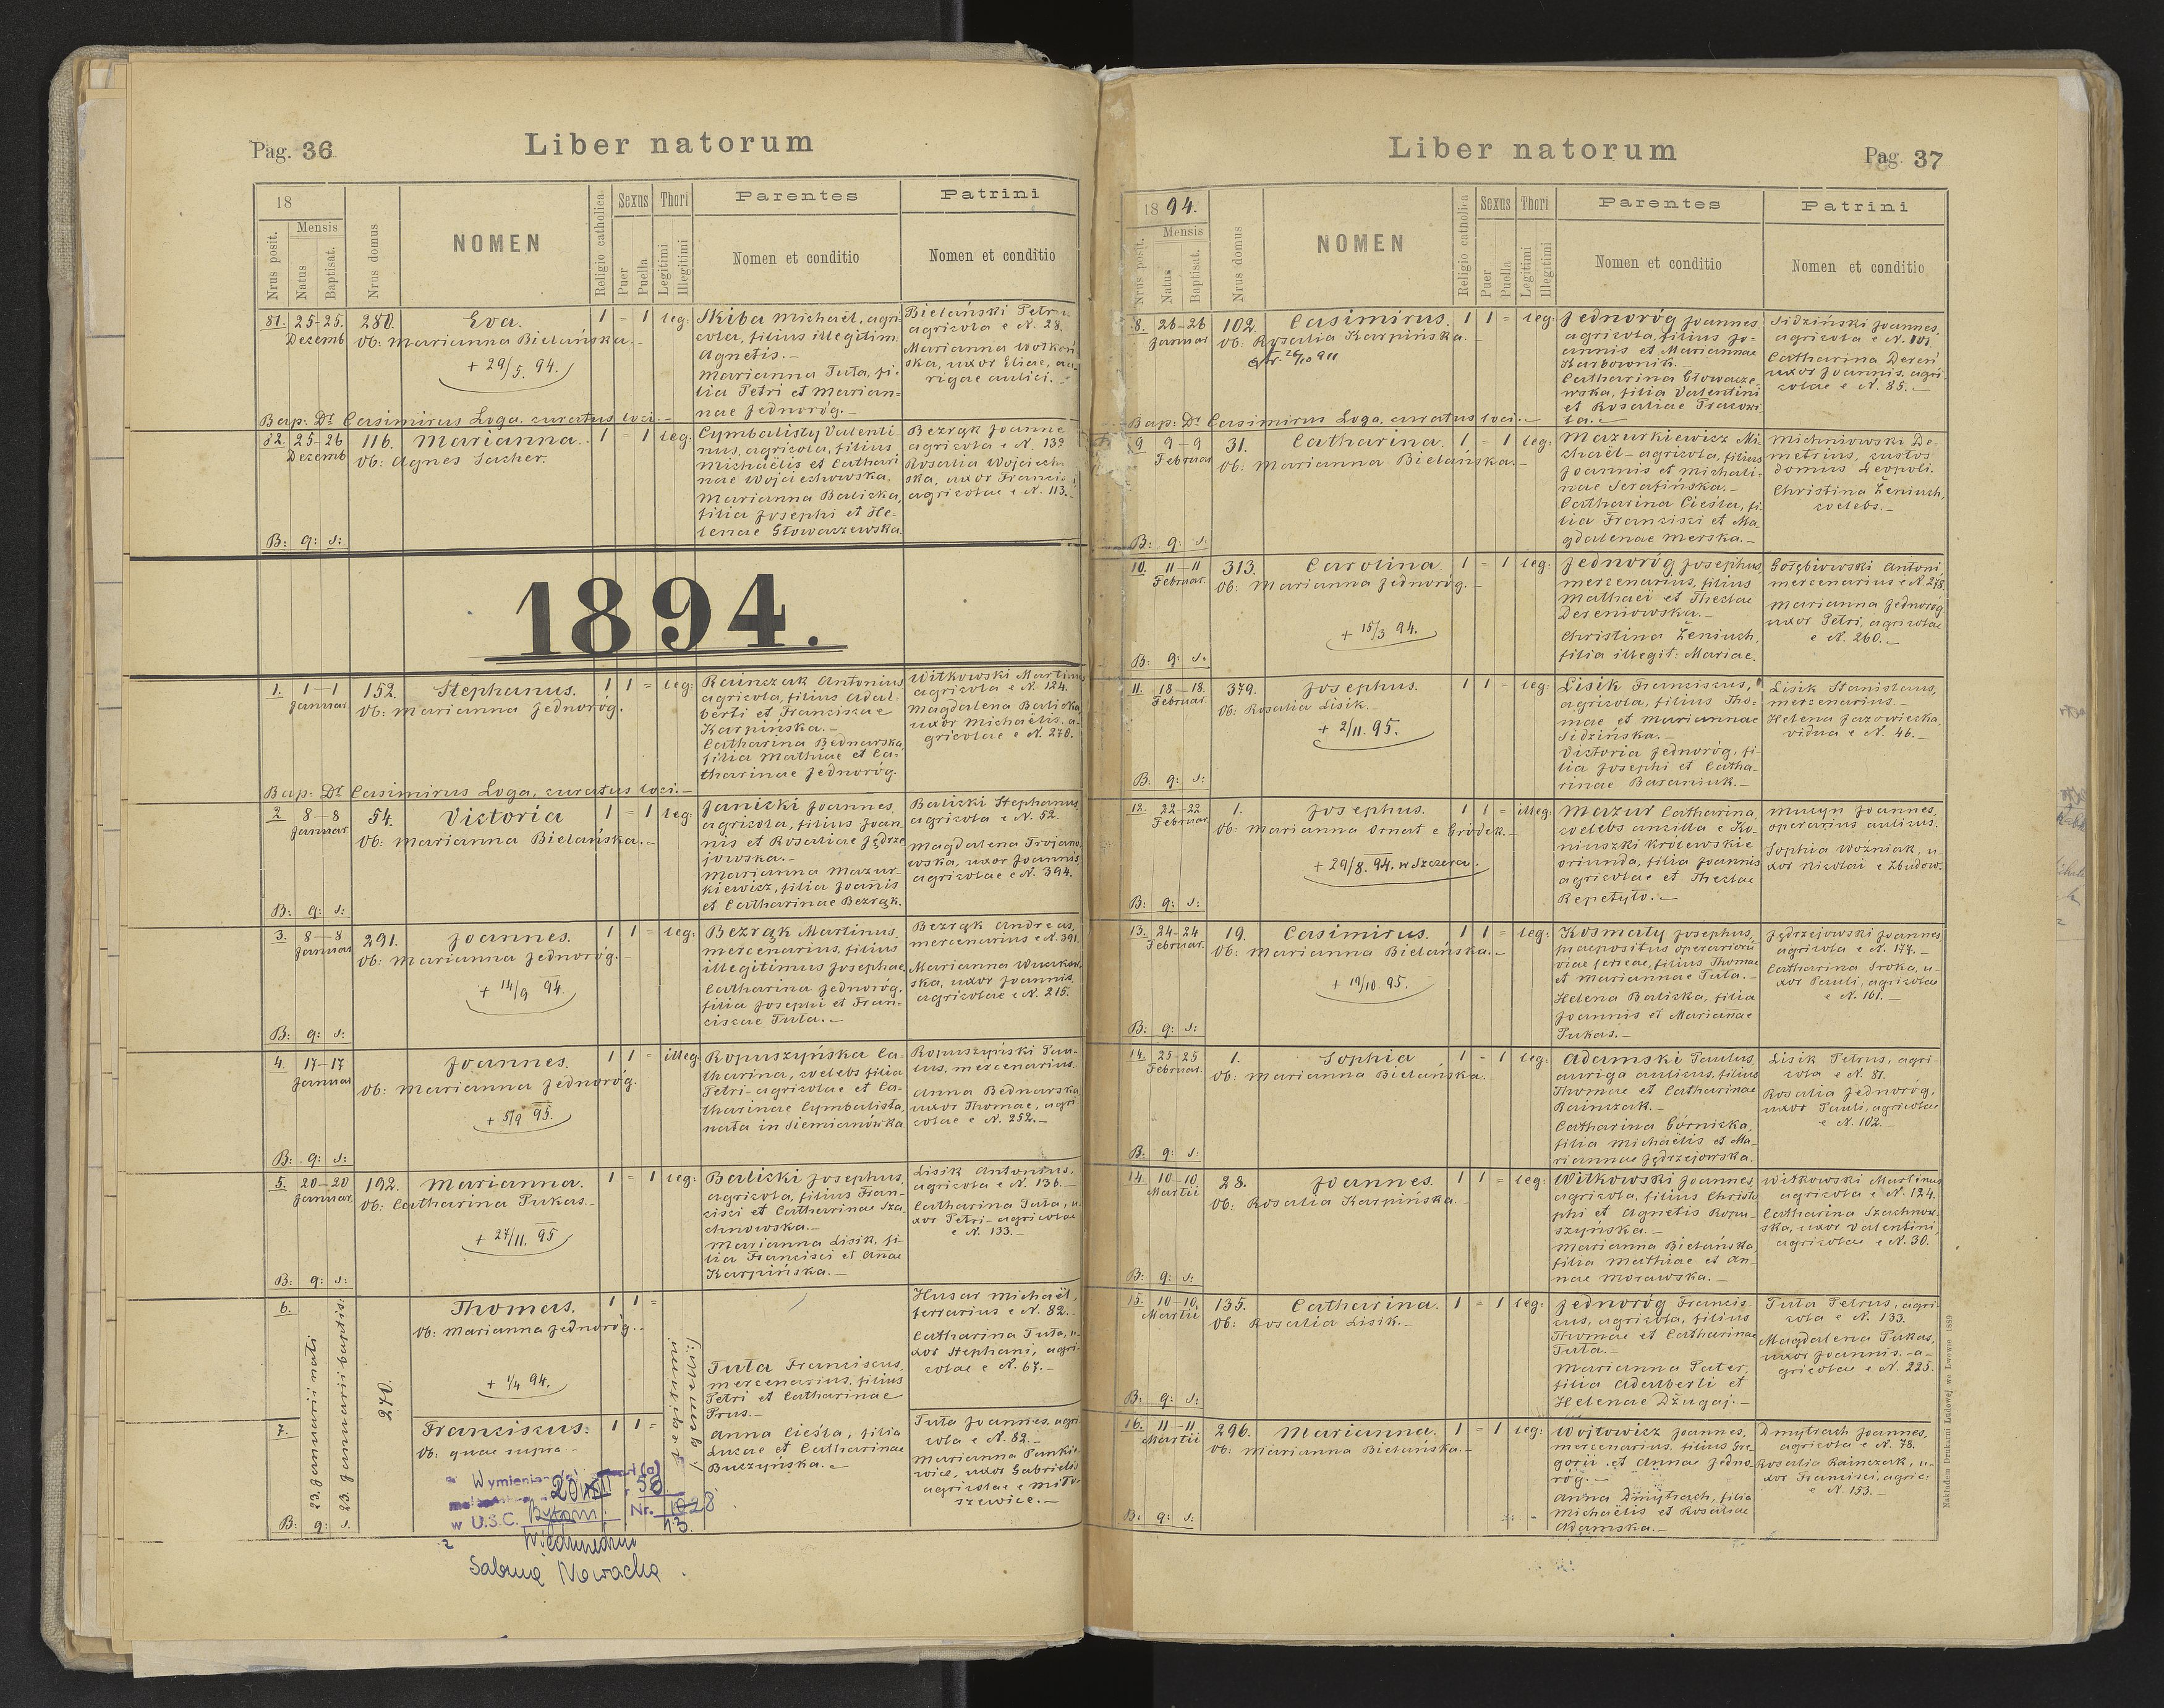 Pag. 36
Liber natorum
18
Mensis
Nrus posit.
Natus
Baptisat.
Nrus domus
NOMEN
Religio catholica
Sexus
Puer
Puella
Thori
Legitimi
Illegitimi
Parentes
Nomen et conditio
Patrini
Nomen et conditio
81. 25-25. 280. Eva. 1 = 1 leg:
Dezemb Ob: Marianna Bielańska.-
+ 29/5. 94.
Skiba Michaël, agri-
cola, filius illegitim.
Agnetis.-
Marianna Tuta, fi-
lia Petri et Marian-
nae Jednoróg.-
Bielański Petru
agricola e N. 28.
ska, uxor Eliae, au-
rigae aulici.-
Bap: Dr Casimirus Loga, curatus loci.-
82. 25-26 116. Marianna. 1 = 1 leg:
Dezemb Ob: Agnes Sacher.
Cymbalisty Valenti
nus, agricola, filius
Michaëlis et Cathari
nae Wojciechowska.
Marianna Baliska,
filia Josephi et He-
lenae Głowaczewska.
Bezrąk Joanne
agricola e N. 139
Rosalia Wojciech-
ska, uxor Francis i,
agricolae e N. 113.-
B: q: s:
1894.
1. 1-1 152. Stephanus. 1 1 = leg:
Januar. Ob: Marianna Jednoróg.
Rainczak Antonius
agricola, filius Adal-
berti et Franciscae
Karpińska.-
Catharina Bednarska,
filia Mathiae et Ca-
tharinae Jednoróg.
Witkowski Martinus
agricola e N. 124.
Magdalena Baliska
uxor Michaëlis, a-
gricolae e N. 270.
Bap: Dr Casimirus Loga, curatus loci.-
2 8-8 54. Victoria 1 = 1 leg:
Januar. Ob: Marianna Bielańska.-
Janicki Joannes
agricola, filius Joan
nis et Rosaliae Jędrze
jowska.-
Marianna Mazur-
kiewicz, filia Joannis
et Catharinae Bezrąk.
Balicki Stephanus
agricola e N. 52.
Magdalena Trojano
wska, uxor Joannis
agricolae e N. 394.
B: q: s:
3. 8-8 291. Joannes. 1 1 = leg:
Januar Ob: Marianna Jednoróg.-
+ 14/9 94.
Bezrąk Martinus
mercenarius, filius
illegitimus Josephae.
Catharina Jednoróg,
filia Josephi et Fran-
ciscae Tuta.-
Bezrąk Andreas,
mercenarius e N. 391.
ska, uxor Joannis
agricolae e N. 215.
B: q: s:
4. 17-17 Joannes. 1 1 = illeg:
Januar Ob: Marianna Jednoróg.
+ 5/9 95.
Ropuszyńska Ca-
tharina, coelebs filia
Petri-agricolae et Ca-
tharinae Cymbalista,
nata in Siemianówka
Ropuszyński Pau-
lus, mercenarius.
Anna Bednarska
uxor Thomae, agri
colae e N. 252.-
B: q: s:
5. 20-20 192. Marianna. 1 = 1 leg:
Januar. Ob: Catharina Pukas.-
+ 27/11. 95
Balicki Josephus,
agricola, filius Fran-
cisci et Catharinae Sza-
chnowska.-
Marianna Lisik, fi-
lia Francisci et Anae
Karpińska.-
Lisik Antonius,
agricola e N. 136.-
Catharina Tuta, u-
xor Petri-agricolae
e N. 133.-
B: q: s:
6. Thomas. 1 1 =
Ob: Marianna Jednoróg.-
+ 1/4 94.
23. Januarii nati
23. Januarii baptis:
270.
Legitimi
/: gemelli :/
Husar Michaël,
ferrarius e N. 82.-
Catharina Tuta, u-
xor Stephani, agri-
colae e N. 67.-
Tuta Franciscus,
mercenarius, filius
Petri et Catharinae
Prus.-
Anna Cieśla, filia
Lucae et Catharinae
Buczyńska.-
7. Franciscus. 1 1 =
Ob: quae supra.-
Tuta Joannes, agri
cola e N. 82.-
Marianna Pankie
wicz, uxor Gabrielis
agricolae e Miło
szowice.-
B: q: s:
20 XII r 58
w U.S.C. Bytom Nr. 1028
13
z
Sabiną Nowacką.
Liber natorum
Pag. 37
1894.
Mensis
Nrus posit.
Natus
Baptisat.
Nrus domus
NOMEN
Religio catholica
Sexus
Puer
Puella
Thori
Legitimi
Illegitimi
Parentes
Nomen et conditio
Patrini
Nomen et conditio
8. 26-26 102. Casimirus. 1 1 = leg:
Januar Ob: Rosalia Karpińska.-
Jednoróg Joannes,
agricola, filius Jo-
annis et Mariannae
Karbownik.-
Catharina Głowacze-
wska, filia Valentini
et Rosaliae Traczwi
ta.-
Sidziński Joannes,
agricola e N. 101.
Catharina Dereń
uxor Joannis, agri
colae e N. 85.-
Bap: Dr Casimirus Loga, curatus loci.-
9 9-9 31. Catharina. 1 = 1 leg:
Februar Ob: Marianna Bielańska.-
Mazurkiewicz Mi-
chaël-agricola, filius
Joannis et Michali-
nae Serafińska.-
Catharina Cieśla, fi
lia Francisci et Ma
gdalenae Merska.-
Michniowski De-
metrius, custos
domus Leopoli.
Christina Żeniuch,
coelebs.-
B: q: s:
10. 11-11 313. Carolina. 1 = 1 leg:
Februar. Ob: Marianna Jednoróg.-
+ 15/3 94.
Jednoróg Josephus,
mercenarius, filius
Mathaei et Theclae
Dereniowska.-
Christina Żeniuch,
filia illegit: Mariae.
Gołębiowski Antoni,
mercenarius e N. 278
Marianna Jednoróg
uxor Petri, agricolae
e N. 260.-
B: q: s:
11. 18-18. 379. Josephus. 1 1 = leg:
Februar. Ob: Rosalia Lisik.-
+ 2/11. 95.
Lisik Franciscus,
agricola, filius Tho-
mae et Mariannae
Sidzińska.-
Victoria Jednoróg, fi-
lia Josephi et Catha-
rinae Baraniuk.-
Lisik Stanislaus,
mercenarius.-
Helena Jazowiecka,
vidua e N. 46.-
B: q: s:
12. 22-22 1. Josephus. 1 1 = illeg:
Februar. Ob: Marianna Ornat e Gródek.-
+ 29/8. 94. w Szczerca.
Mazur Catharina
coelebs ancilla e Ko-
niuszki Królewskie
oriunda, filia Joannis
agricolae et Theclae
Repetyło.-
Mucyn Joannes,
operarius aulicus.
Sophia Woźniak, u-
xor Nicolai e Zbudow.
B: q: s:
13. 24-24 19. Casimirus. 1 1 = leg:
Februar. Ob: Marianna Bielańska.-
+ 19/10. 95.
Kosmaty Josephus,
praepositus operariorū
viae ferreae, filius Thomae
et Mariannae Tuta.-
Helena Baliska, filia
Joannis et Mariañae
Pukas.-
Jędrzejowski Joannes
agricola e N. 177.-
Catharina Sroka, u-
xor Pauli, agricolae
e N. 161.-
B: q: s:
14. 25-25 1. Sophia 1 = 1 leg:
Februar. Ob: Marianna Bielańska.
Adamski Paulus,
auriga aulicus, filius
Thomae et Catharinae
Rainczak.-
Catharina Górnicka,
filia Michaëlis et Ma-
riannae Jędrzejowska.
Lisik Petrus, agri-
cola e N. 81.
Rosalia Jednoróg,
uxor Pauli, agricolae
e N. 102.-
B: q: s:
14. 10-10. 28. Joannes. 1 1 = leg:
Martii Ob: Rosalia Karpińska.-
Witkowski Joannes,
agricola, filius Christo
phi et Agnetis Ropu-
szyńska.-
Marianna Bielańska,
filia Mathiae et An-
nae Morawska.-
Witkowski Martinus
agricola e N. 124.
Catharina Szachnow-
ska, uxor Valentini,
agricolae e N. 30.
B: q: s:
15. 10-10. 135. Catharina. 1 = 1 leg:
Martii Ob: Rosalia Lisik.-
Jednoróg Francis-
cus, agricola, filius
Thomae et Catharinae
Tuta.-
Marianna Pater,
filia Adalberti et
Helenae Dżugaj.-
Tuta Petrus, agri
cola e N. 133.
Magdalena Pukas,
uxor Joannis,-a-
gricolae e N. 225.
B: q: s:
16. 11-11 296. Marianna. 1 = 1 leg:
Martii Ob: Marianna Bielańska.-
Wojtowicz Joannes,
mercenarius, filius Gre
gorii et Annae Jedno
róg.-
Anna Dmytrach, filia
Michaëlis et Rosaliae
Adamska.-
Dmytrach Joannes,
agricola e N. 78.
Rosalia Rainczak, u-
xor Francisci, agric:
e N. 153.-
B: q: s:
Nakładem Drukarni Ludowej we Lwowie 1889